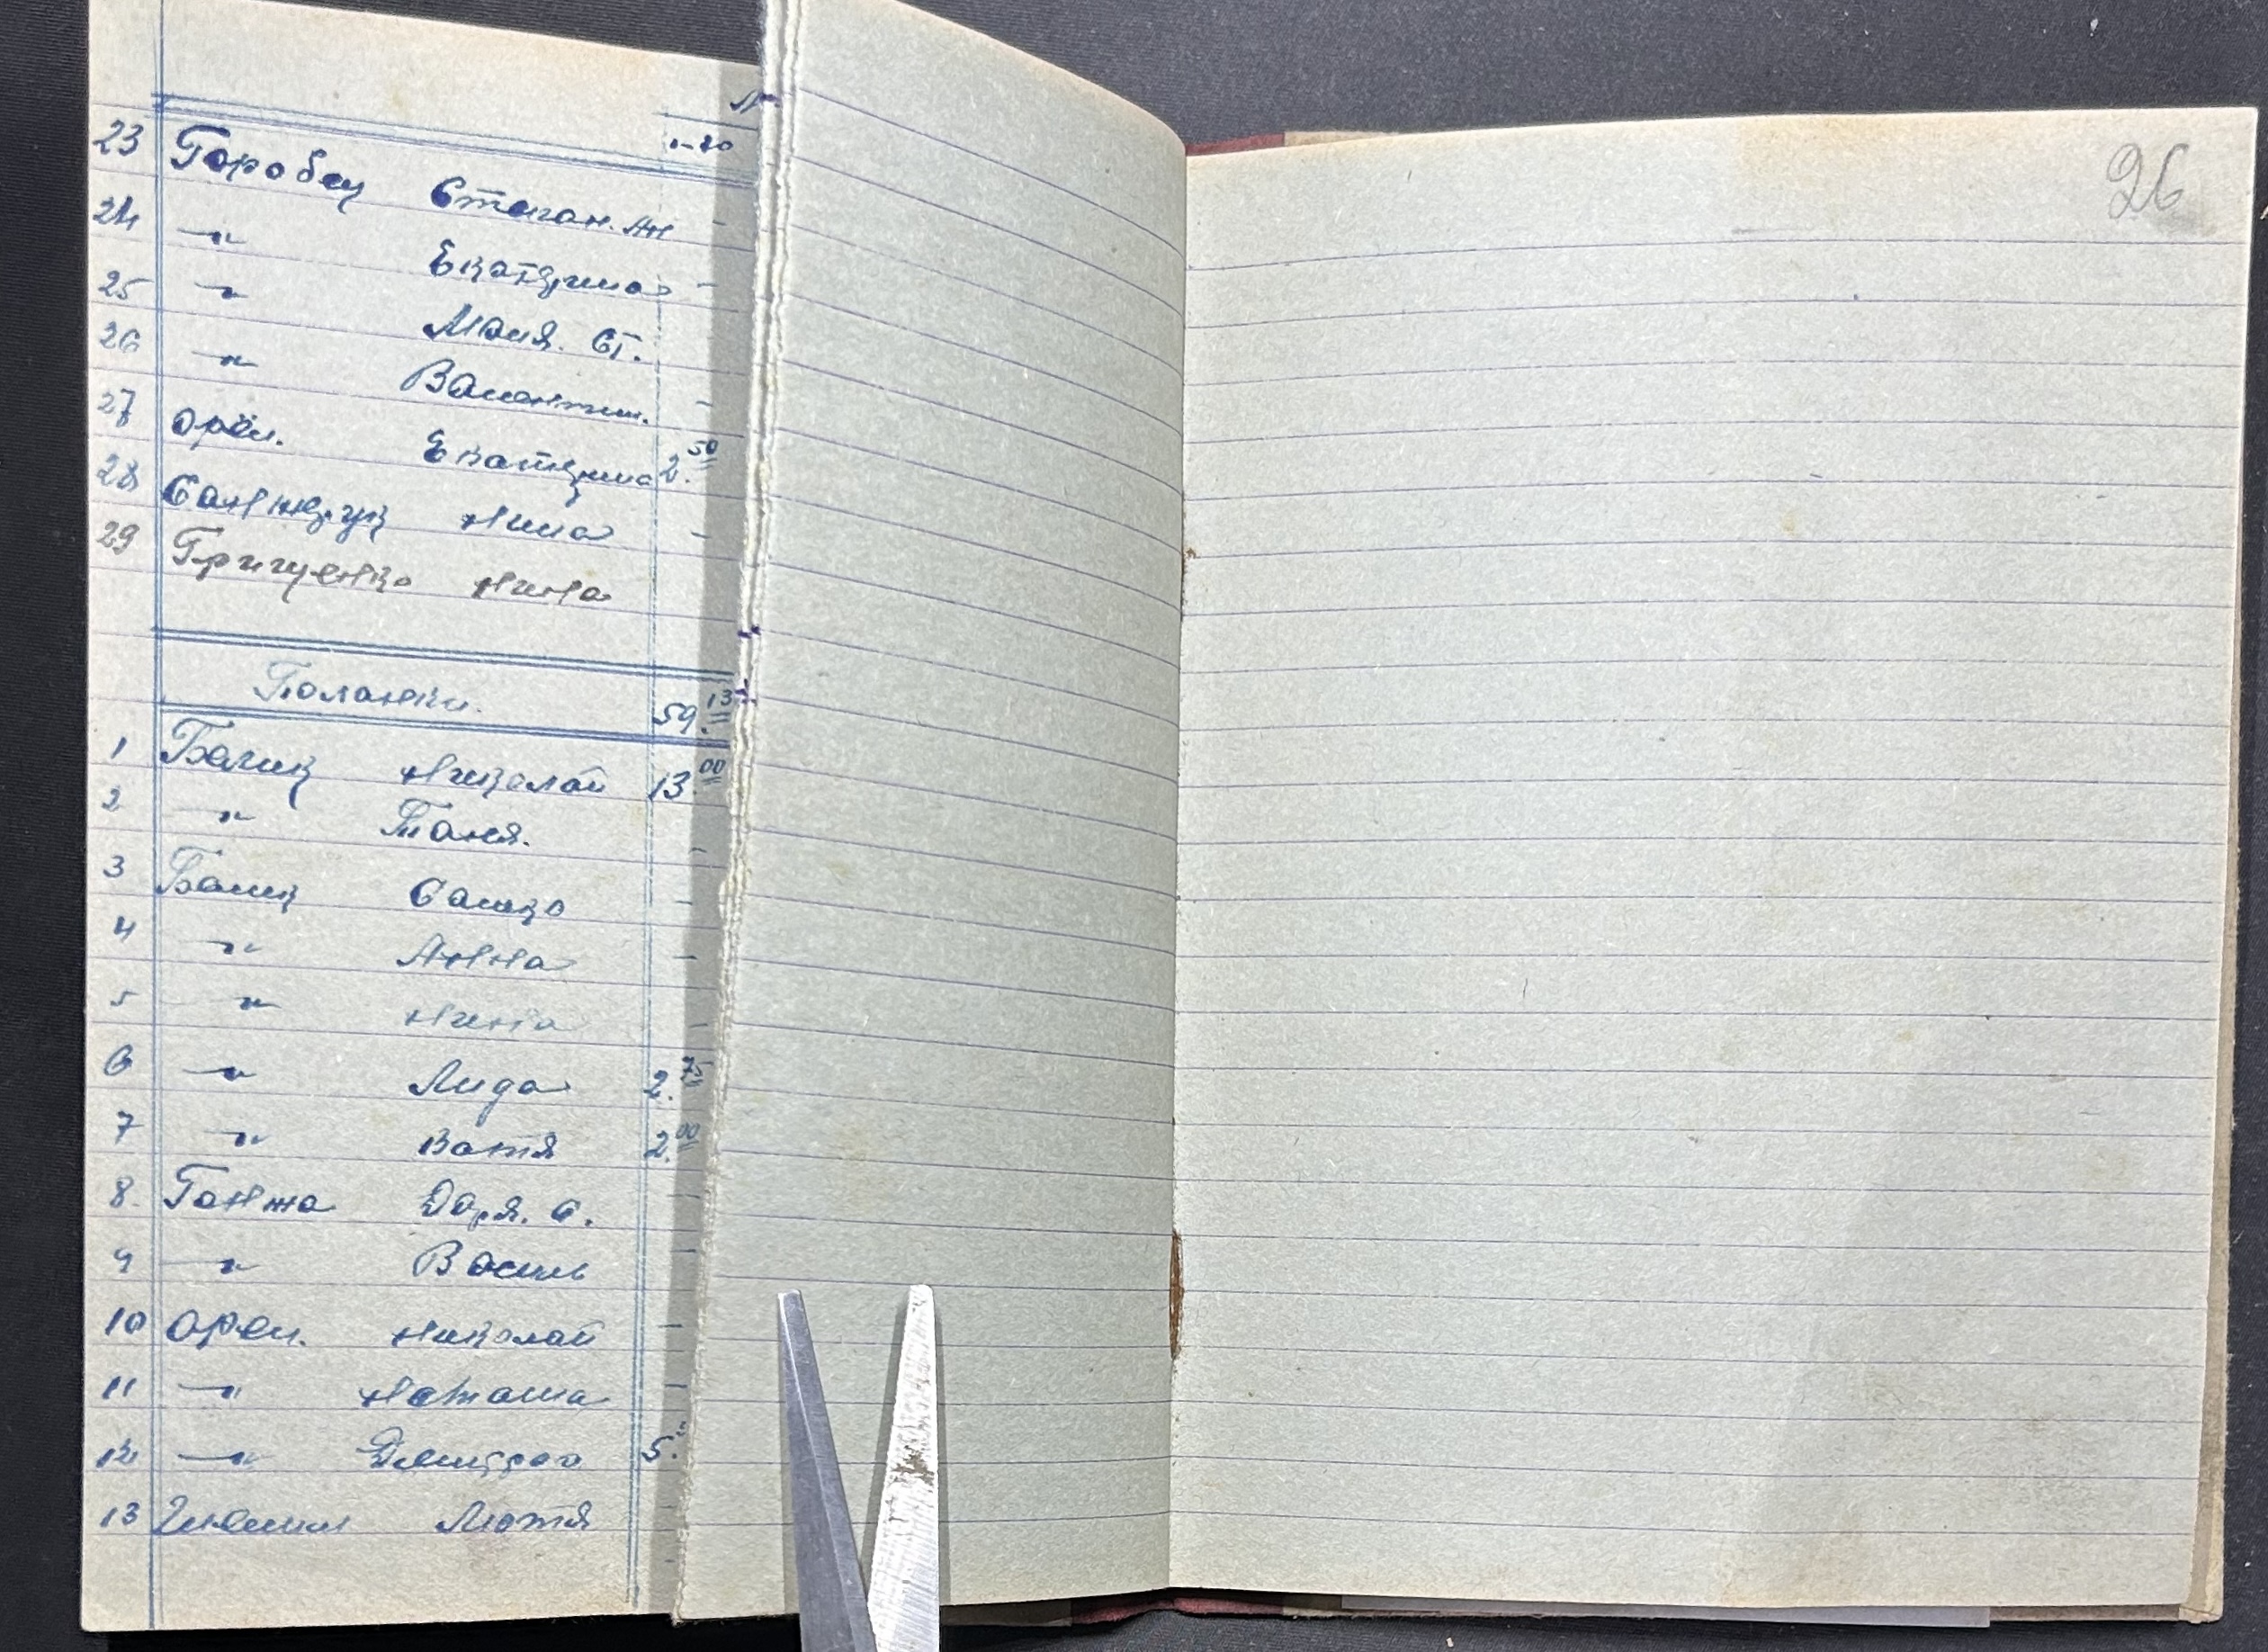 1-20
23 Горобец Степан. Ан -
24 -"- Екатерина -
25 -"- Маня. Ст.
26 -"- Валентин. -
27 Орел. Екатерина 2.50
28 Нина -
29 Григуенко Нина
Полянки. 59.13
1 Белик Николай 13.00
2 -"- Таня. -
3 Белик Сашко -
4 -"- Анна -
5 -"- Нина -
6 -"- Лида 2.75
7 -"- Ватя 2.00
8. Ганжа Даря. С. -
9 -"- Василь -
10 Орел. Николай -
11 -"- Наташа -
12 -"- Дмитро 5."
13 Мотя -
26